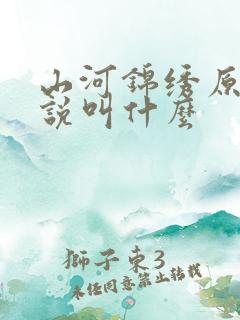 山河錦绣原
說叫什麼
獅子東3
未经同意禁止转载